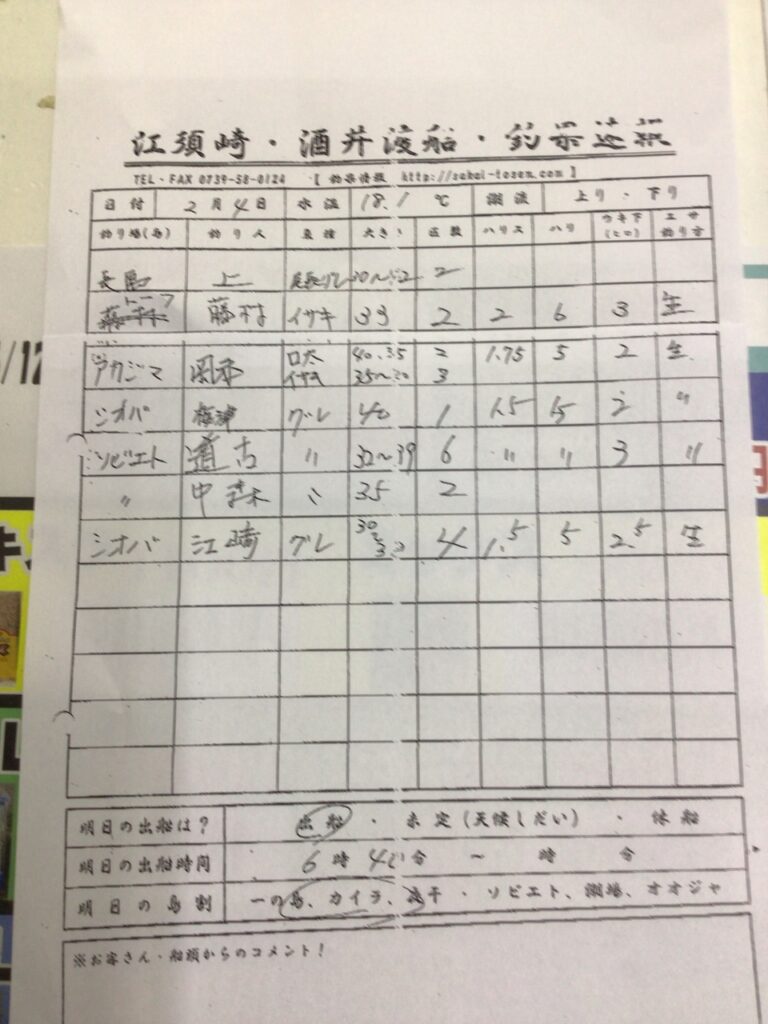 江須崎・酒井渡船・釣果速報
TEL・FAX 0739-58-0124 【 釣果情報 http://sakai-tosen.com 】
日付 2月4日 水温 18.1 ℃ 潮流 上り・下り
釣り場(島) 釣り人 魚種 大きさ 匹数 ハリス ハリ ウキ下(ヒロ) エサ釣り方
長島 上 尾長グレ 30〜 2
藤村 イサキ 33 2 2 6 3 生
アカジマ 口太 イサキ 40.35 35〜30 2 3 1.75 5 2 生
シオバ 梅津 グレ 40 1 1.5 5 2 〃
ソビエト 道古 〃 32〜39 6 〃 〃 3 〃
〃 中森 〃 35 2
シオバ 江崎 グレ 30 4 1.5 5 2.5 生
明日の出船は? 出船・未定(天候しだい)・休船
明日の出船時間 6時4分 〜 時 分
明日の島割 一の島、カイラ、沖干・ソビエト、潮場、オオジャ
※お客さん・船頭からのコメント!